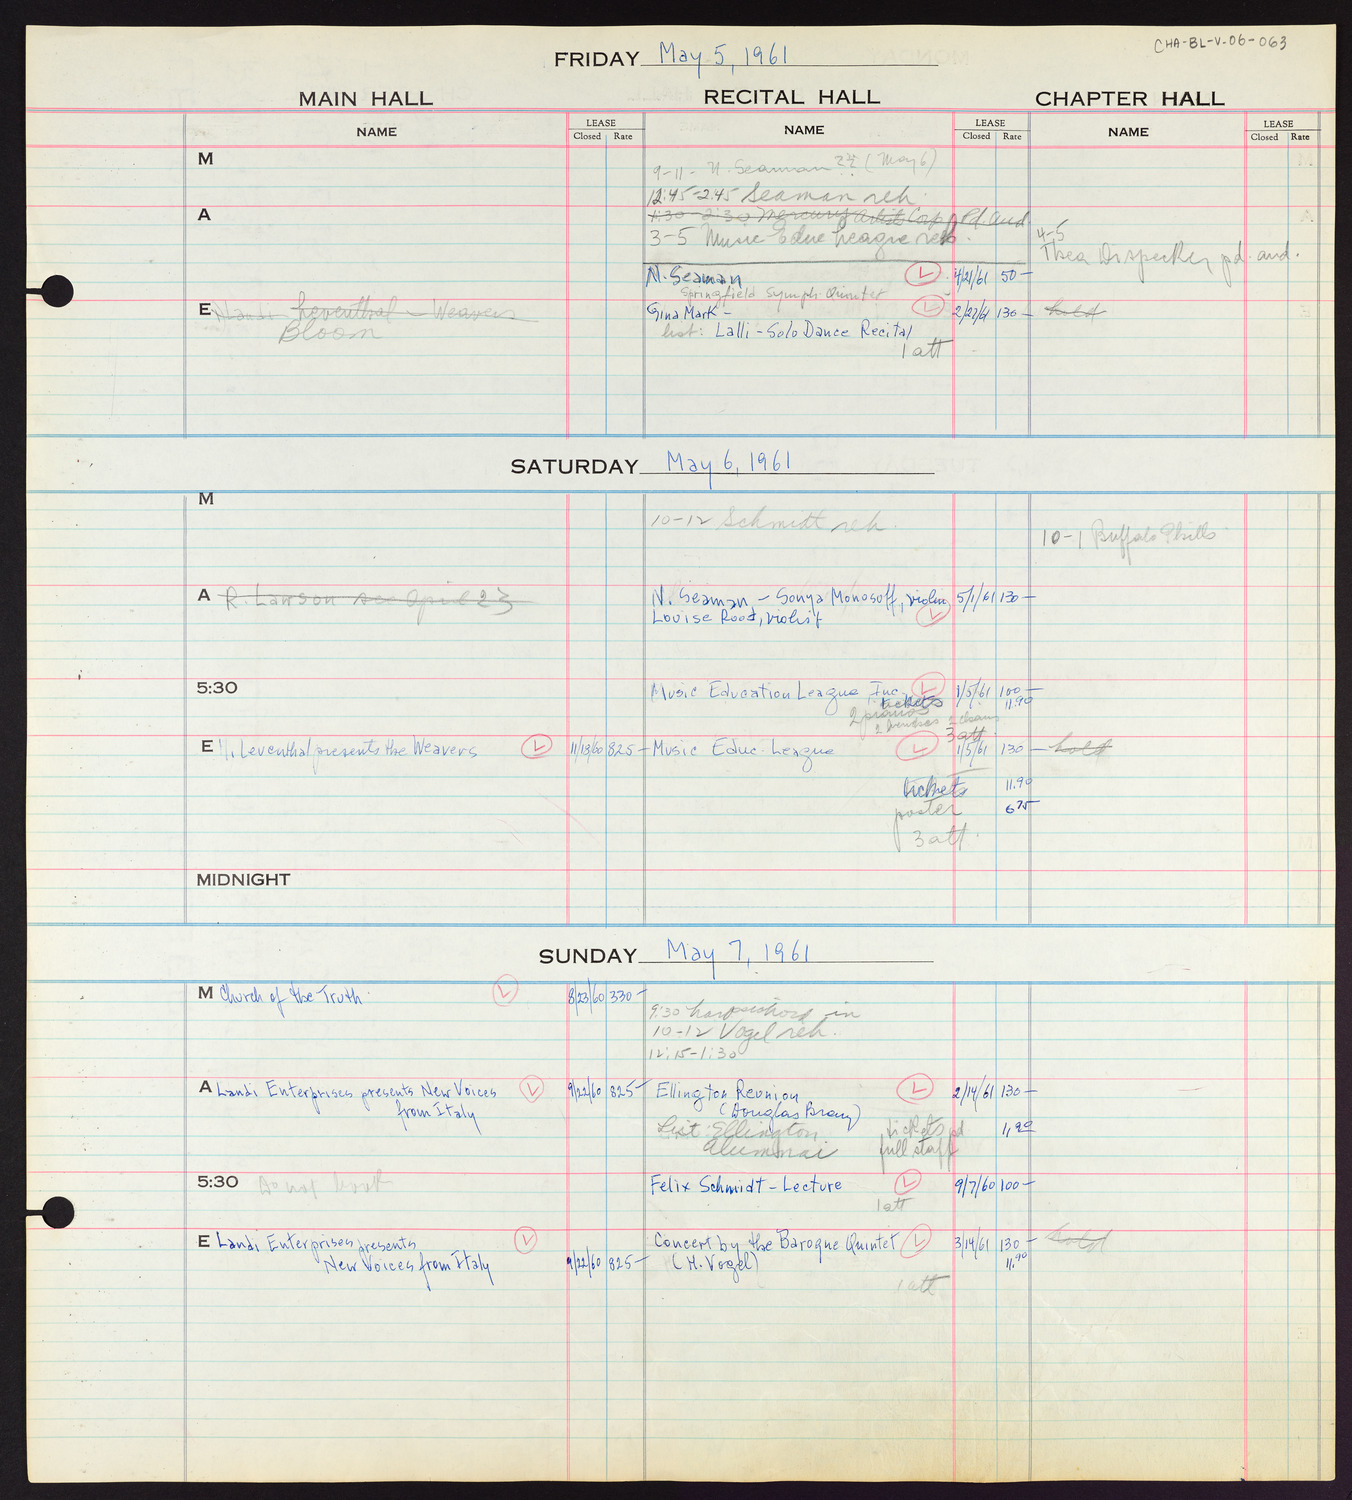 CHA-BL-V-06-063
FRIDAY May 5, 1961
MAIN HALL RECITAL HALL CHAPTER HALL
NAME LEASE Closed Rate NAME LEASE Closed Rate NAME LEASE Closed Rate
M
9-11- N. Seaman (May 6)
12:45-2:45 Seaman reh.
A
1:30-2:30 Mercury Artist Corp pd. aud
3-5 Music Educ League reh.
4-5
Thea Dispecker pd. aud.
N. Seaman 4/21/61 50-
Springfield Symph. Quintet
E Leventhal - Weavers
Bloom
Gina Mark - 2/27/61 130- hold
list: Lalli - Solo Dance Recital
1 att
SATURDAY May 6, 1961
M
10-12 Schmidt reh.
10-1 Buffalo Phills
A R. Lawson see April 23
N. Seaman - Sonya Monosoff, violin 5/1/61 130-
Louise Rood, violist
5:30
Music Education League Inc. 1/5/61 100-
tickets 11.90
2 pianos
3 att.
E H. Leventhal presents the Weavers 11/13/60 825- Music Educ. League 1/5/61 130- hold
tickets 11.90
poster 6 75
3 att.
MIDNIGHT
SUNDAY May 7, 1961
M Church of the Truth 8/23/60 330-
9:30 harpsichord in
10-12 Vogel reh.
12:15-1:30
A Landi Enterprises presents New Voices 9/22/60 825- Ellington Reunion 2/14/61 130-
from Italy (Douglas Bray)
List: Ellington tickets pd 11.90
Alumnai full staff
5:30 Do not book Felix Schmidt - Lecture 9/7/60 100-
1 att
E Landi Enterprises presents Concert by the Baroque Quintet 3/14/61 130- hold
New Voices from Italy 9/22/60 825- (H. Vogel) 11.90
1 att